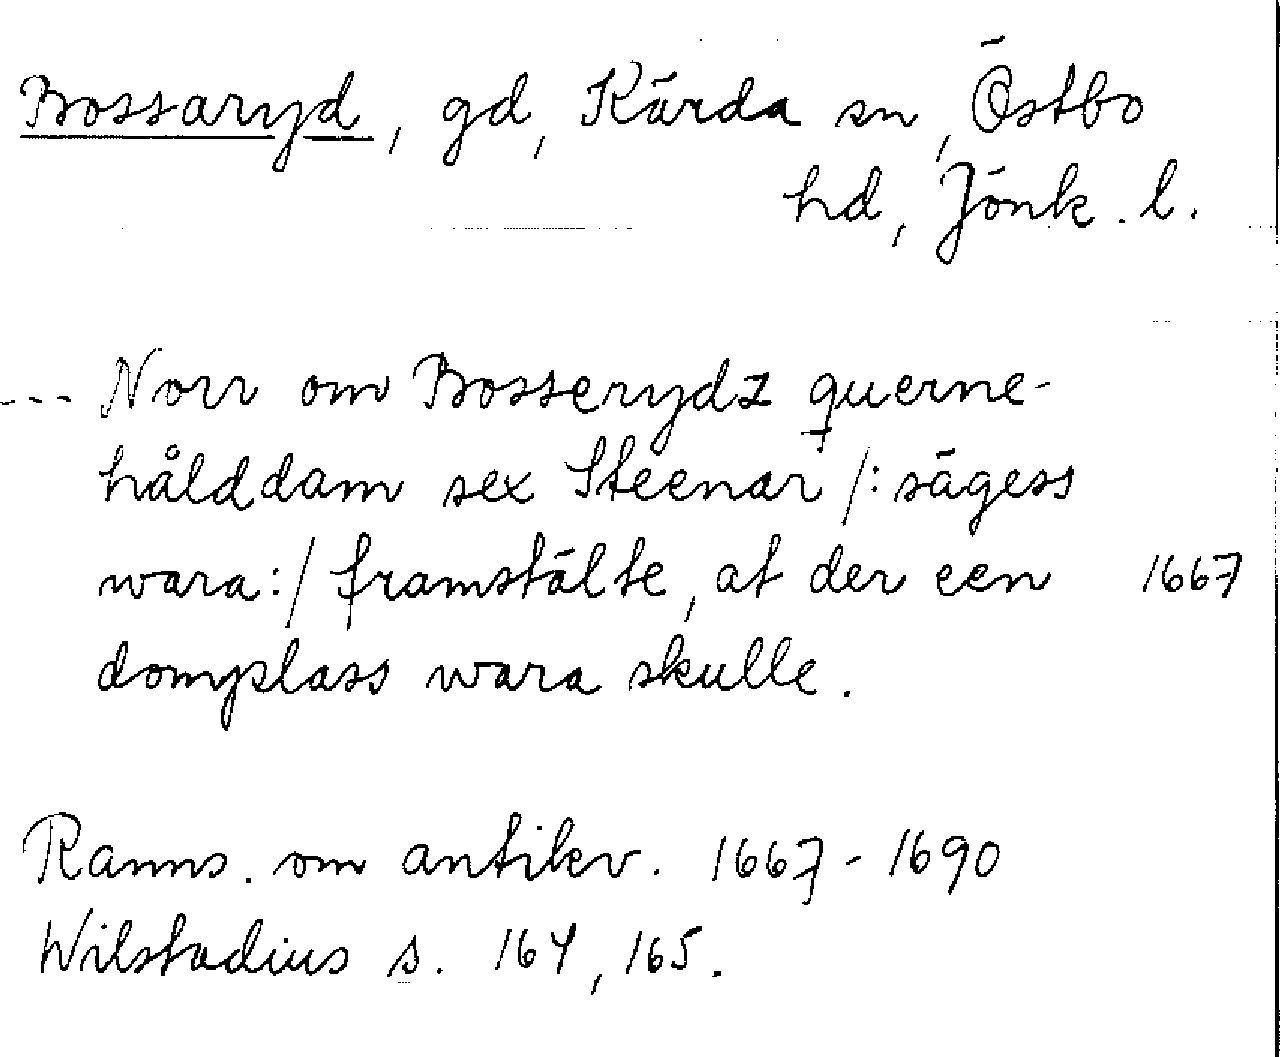 Bossaryd, gd, Kärda sn, Östbo
hd, Jönk. l.
--- Norr om Bosserydz querne-
hålddam sex Steenar /: sägess
wara:/ framstälte, at der een 1667
domplass wara skulle.
Ranns. om antikv. 1667-1690
Wilstadius s. 164, 165.